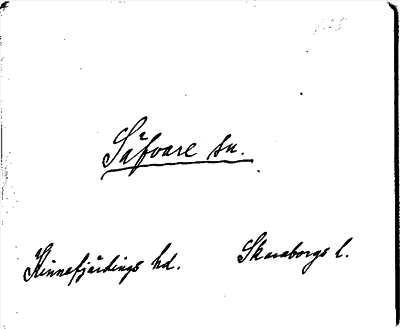 Säfvare sn.
Kinnefjärdings hd. Skaraborgs l.